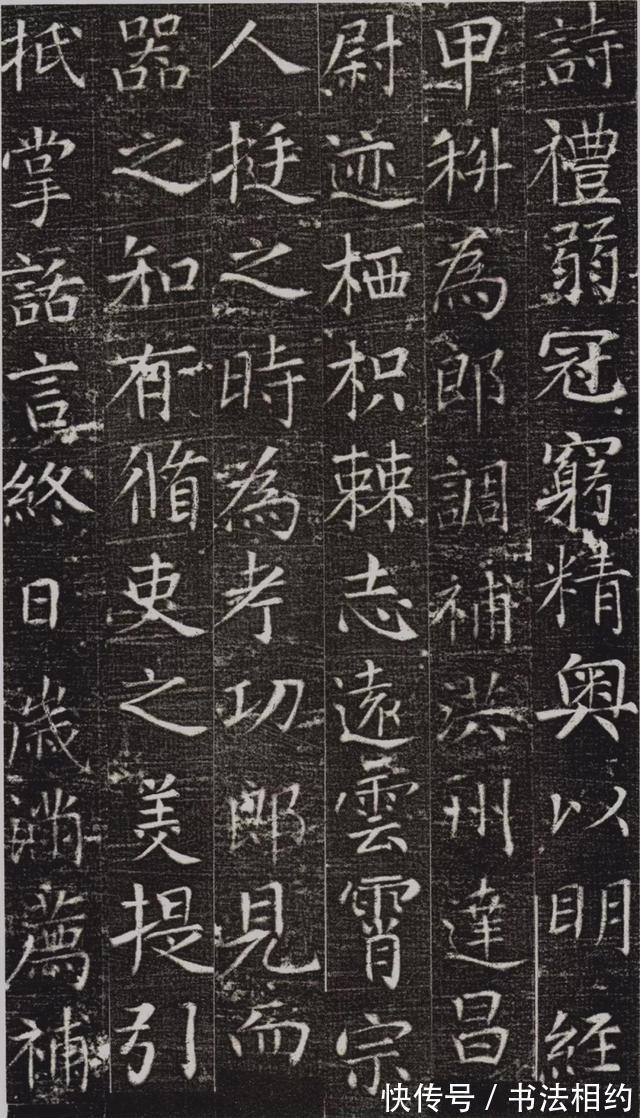 詩禮弱冠窮精奥以明經
甲科為郎調補洪州建昌
尉迹栖枳棘志遠雲霄宗
人挺之時為考功郎見而
器之知有脩吏之美提引
抵掌話言終日歲滿薦補
快传号 / 书法相约